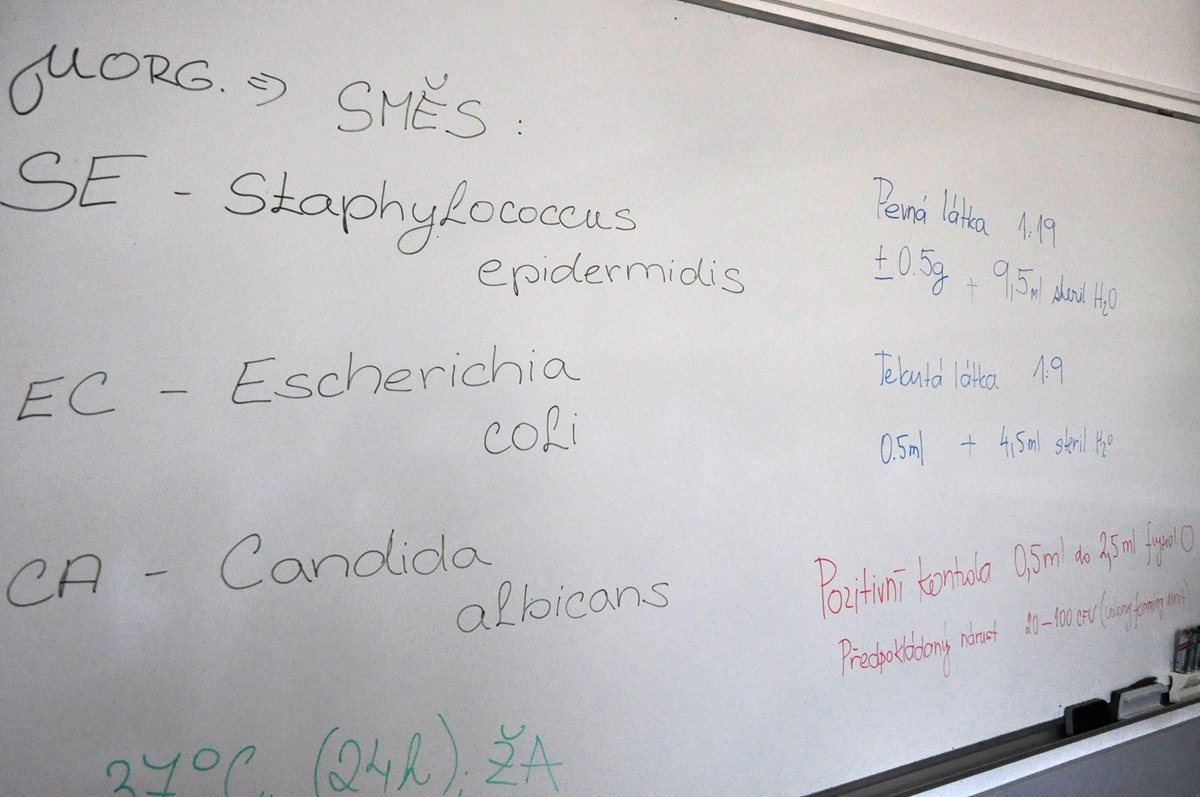 μORG. => SMĚS :
SE - Staphylococcus
epidermidis
EC - Escherichia
coli
CA - Candida
albicans
37°C, (24h), ŽA
Pevná látka 1:19
± 0.5g + 9,5ml steril H₂O
Tekutá látka 1:9
0.5ml + 4,5ml steril H₂O
Pozitivní kontrola 0,5ml do 2,5ml fyziol
Předpokládaný nárust 20-100 CFU (colony forming unit)